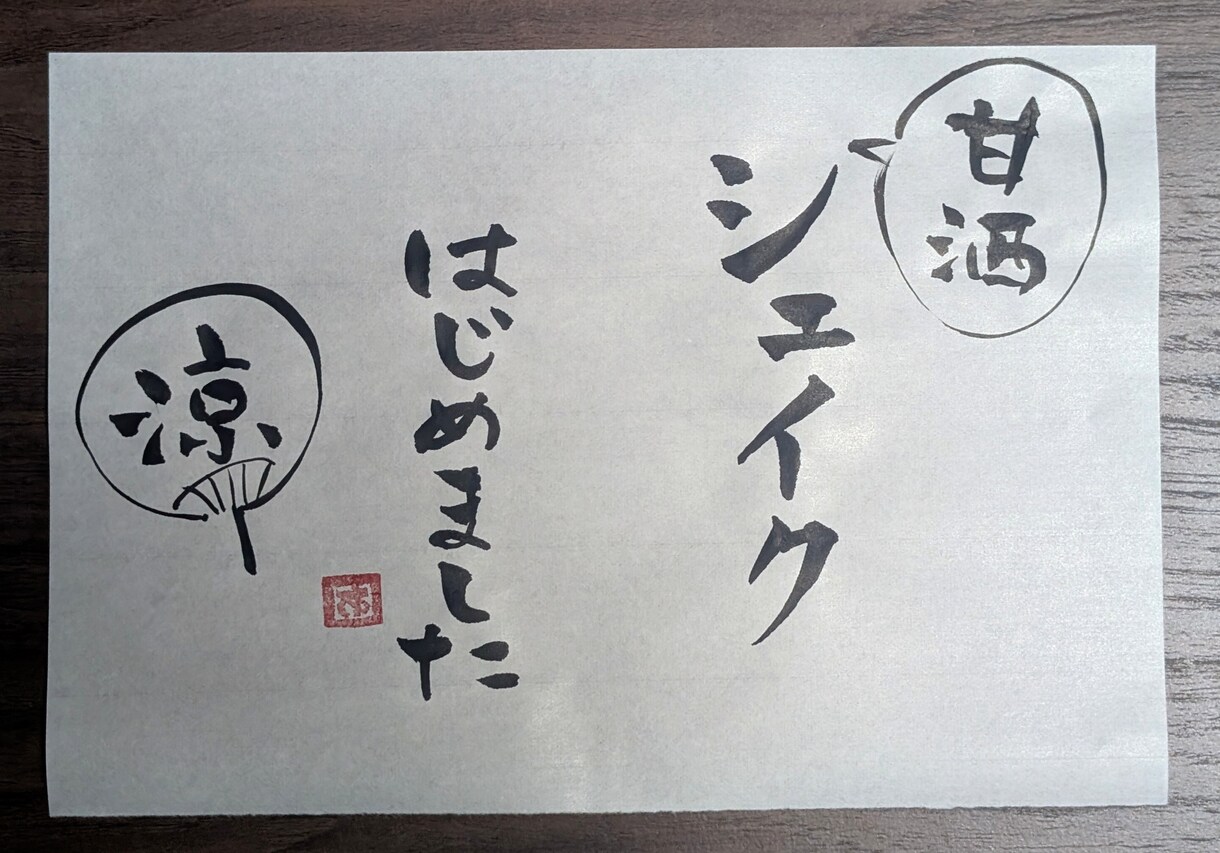 甘酒
シェイク
はじめました
涼